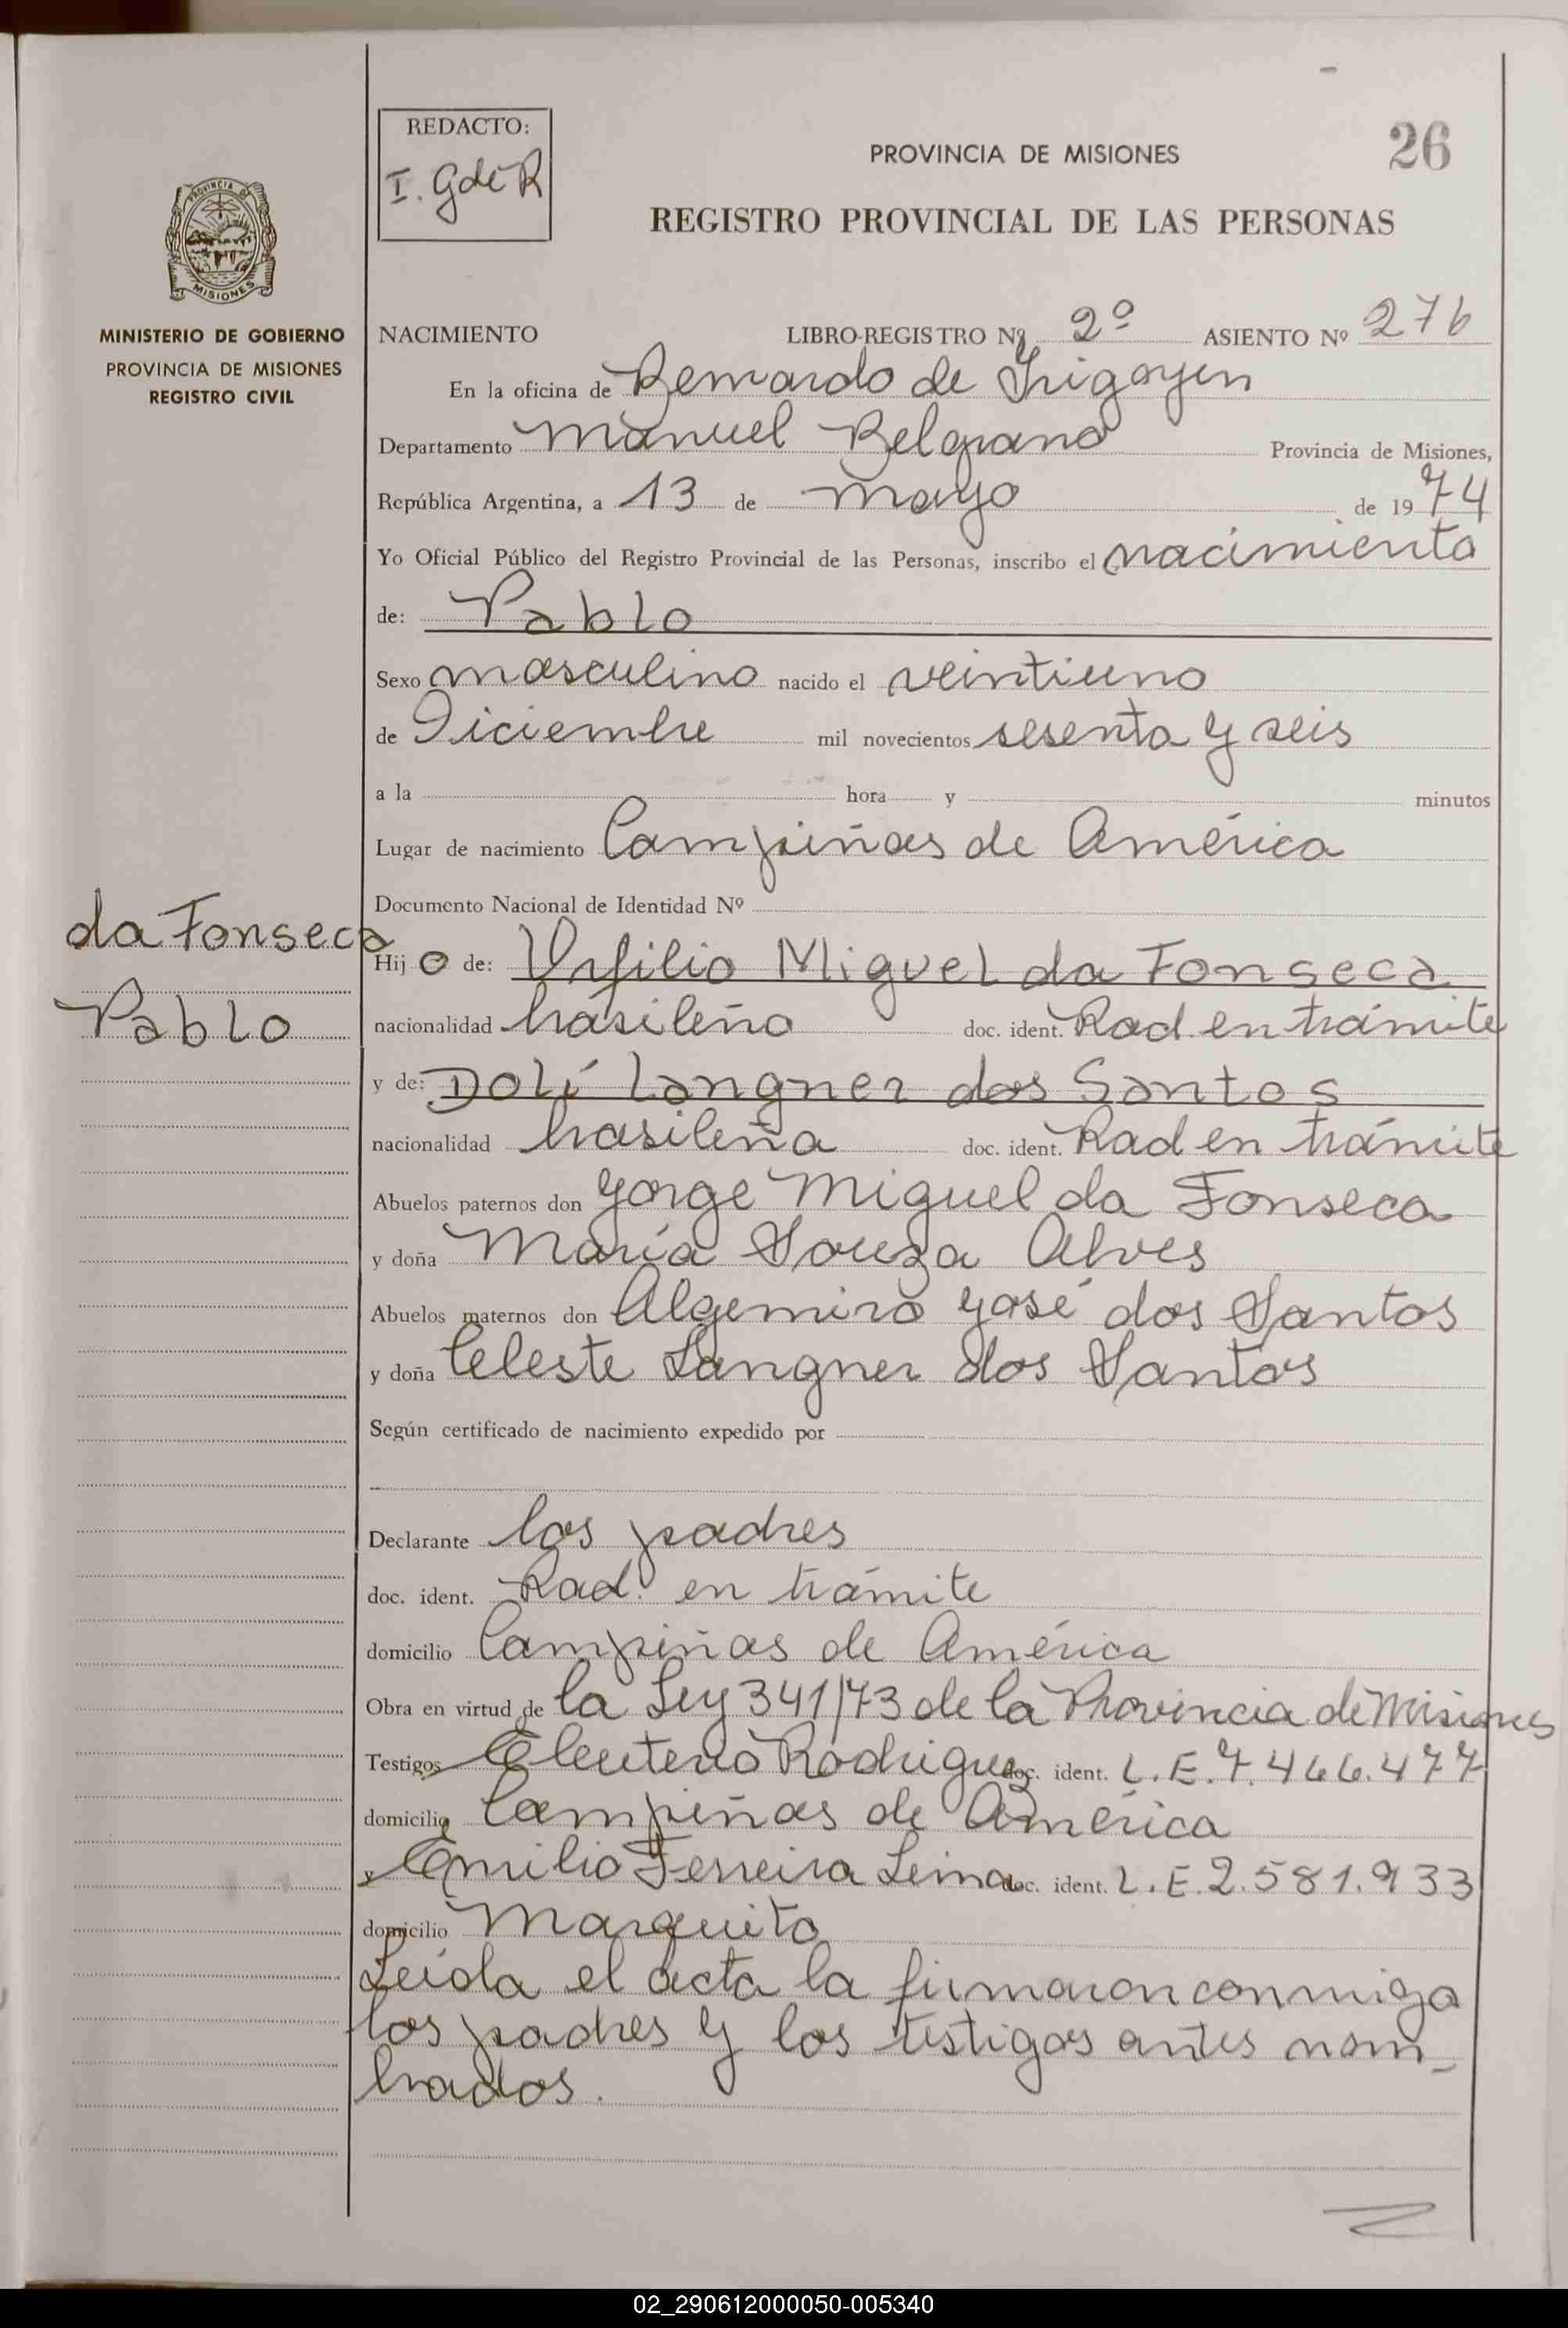 REDACTO:
I. GdeR
PROVINCIA DE MISIONES
26
REGISTRO PROVINCIAL DE LAS PERSONAS
MISIONES
MINISTERIO DE GOBIERNO
PROVINCIA DE MISIONES
REGISTRO CIVIL
NACIMIENTO LIBRO-REGISTRO Nº 2º ASIENTO Nº 276
En la oficina de Bernardo de Irigoyen
Departamento Manuel Belgrano Provincia de Misiones,
República Argentina, a 13 de mayo de 1974
Yo Oficial Público del Registro Provincial de las Personas, inscribo el nacimiento
de: Pablo
Sexo masculino nacido el veintiuno
de Diciembre mil novecientos sesenta y seis
a la hora y minutos
Lugar de nacimiento Campiñas de América
Documento Nacional de Identidad Nº
da Fonseca
Pablo
Hijo de: Miguel da Fonseca
nacionalidad brasileño doc. ident. Rad. en trámite
y de: Dolí Langner dos Santos
nacionalidad brasileña doc. ident. Rad en trámite
Abuelos paternos don Jorge Miguel da Fonseca
y doña María Souza Alves
Abuelos maternos don Algemiro José dos Santos
y doña Celeste Langner dos Santos
Según certificado de nacimiento expedido por
Declarante los padres
doc. ident. Rad. en trámite
domicilio Campiñas de América
Obra en virtud de la Ley 341/73 de la Provincia de Misiones
Testigos Eleuterio Rodriguez doc. ident. L.E. 7.466.477
domicilio Campiñas de América
y Emilio Ferreira Lima doc. ident. L.E. 2.581.933
domicilio Marquito
Leida el acta la firmaron conmigo
los padres y los testigos antes nom-
brados.
02_290612000050-005340